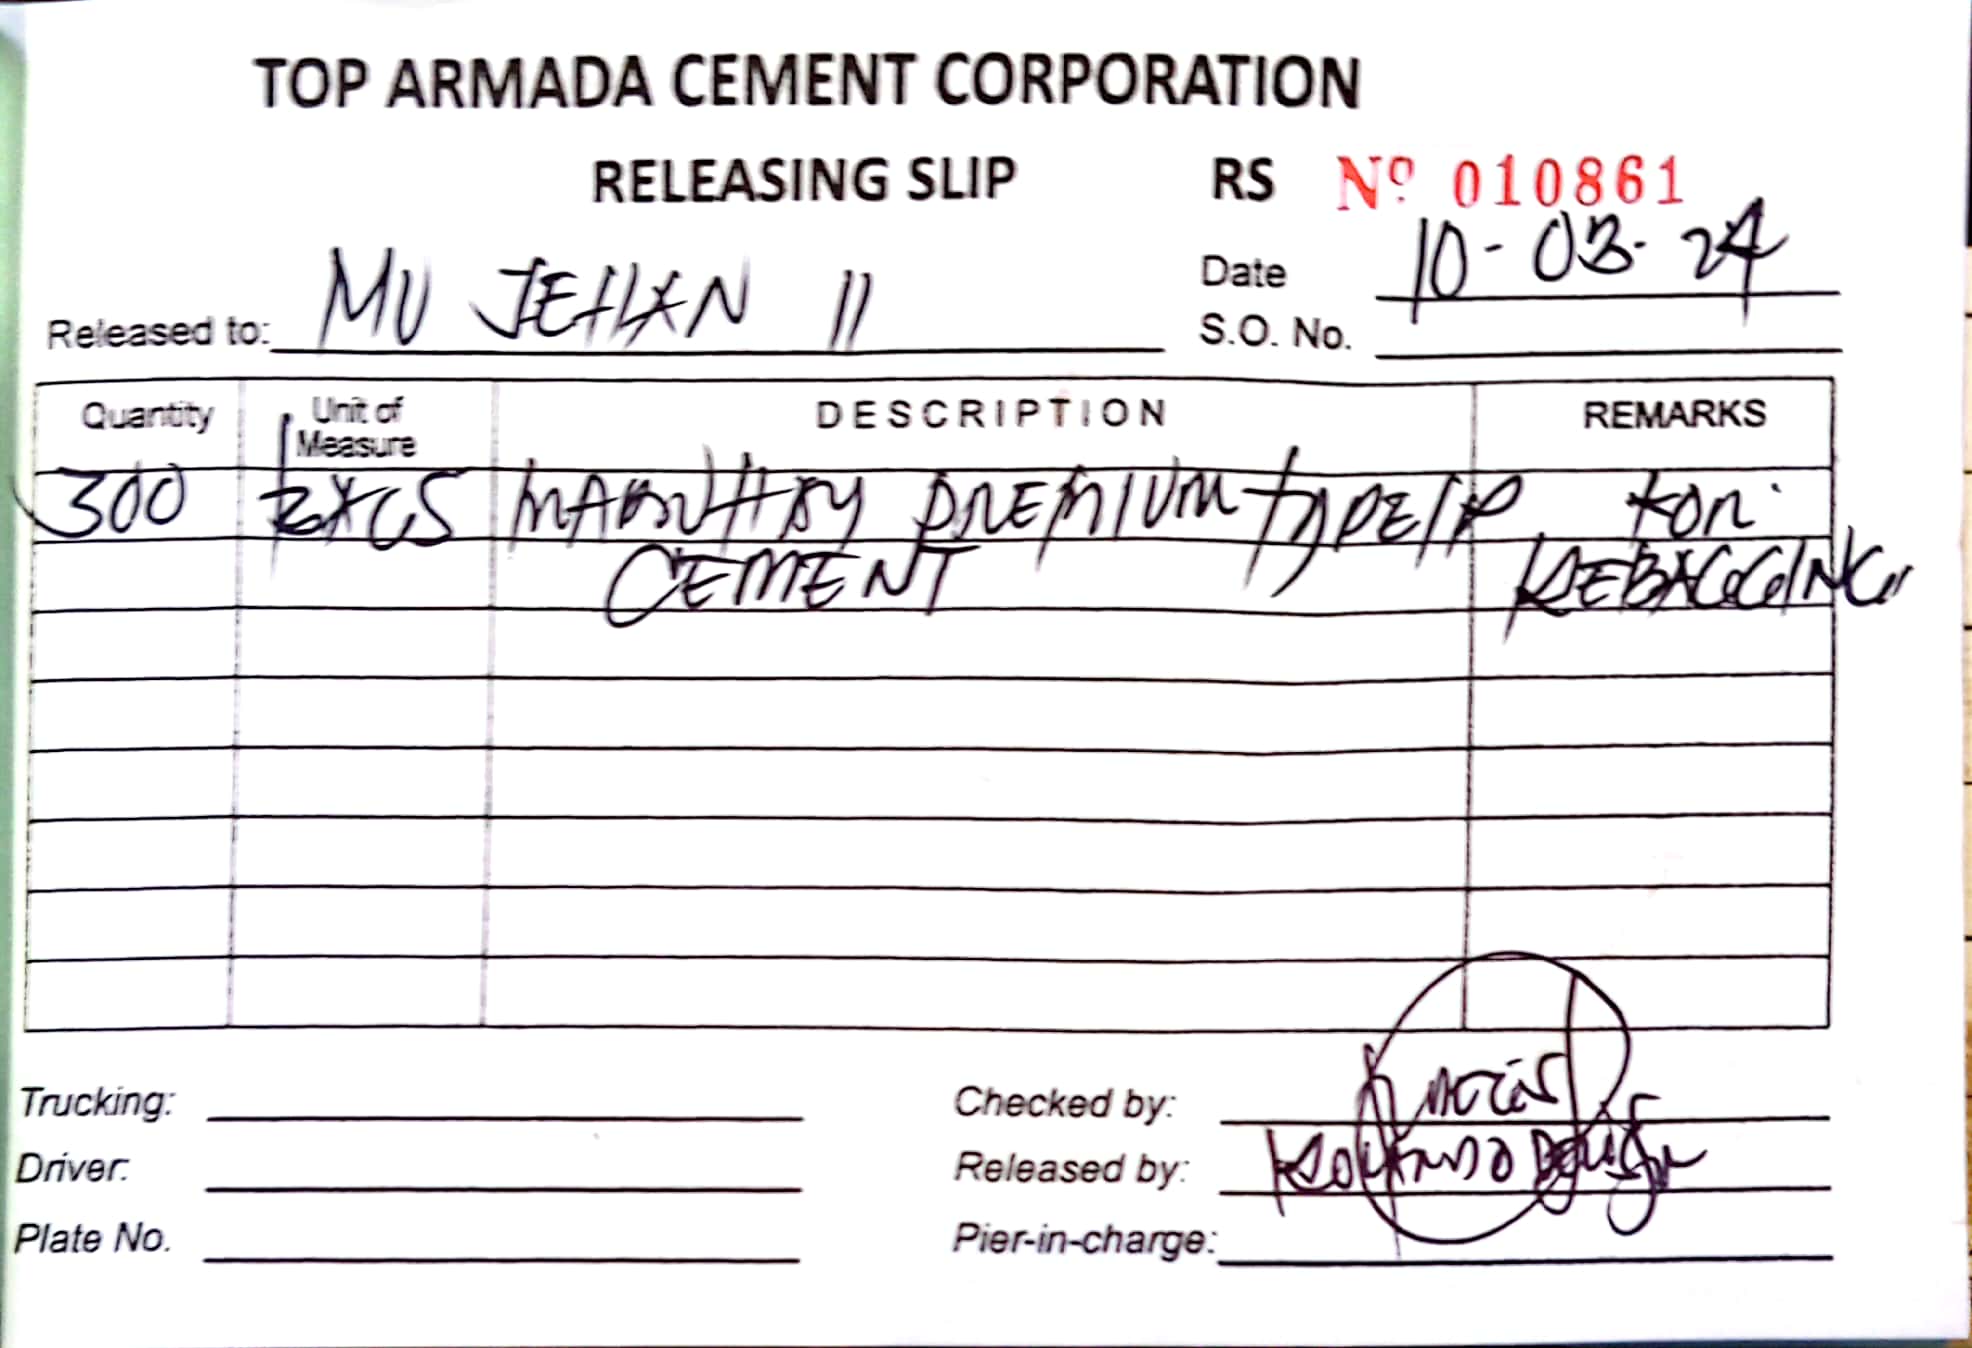 TOP ARMADA CEMENT CORPORATION
RELEASING SLIP RS Nº 010861
Date 10-03-24
Released to: MV JEHAN II
S.O. No.
Quantity Unit of Measure DESCRIPTION REMARKS
300 BAGS PREMIUM TYPE 1P FOR
CEMENT REBAGGING
Trucking: Checked by:
Driver: Released by: ROLANDO
Plate No. Pier-in-charge: